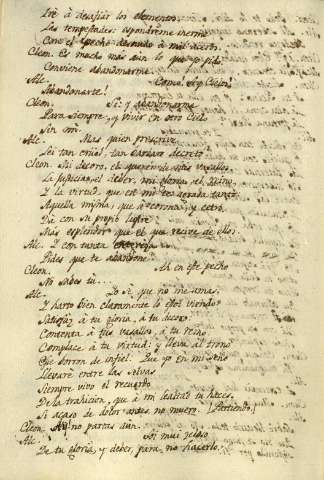 Iré à desafiar los elementos.
Las tempestades expondréme inerme
Con el pecho desnudo à mil aceros.
Cleon. Es mucho mas aun lo que te pido.
Conviene abandonarme.
Alc. Como, ay Cielos!
Abandonarte!
Cleon. Si: y abandonarme
Para siempre, y vivir en otro Cielo
Sin mi.
Alc. Mas quien prescrive
Lei tan cruel, tan barbaro decreto?
Cleon. Mi decoro, la quietud de estos vasallos
La justicia, el deber, mi gloria, el Reino,
Y la virtud, que en mi te agrada tanto
Aquella misma, que à corona, y cetro,
Dá con su propio lustre
Mas esplendor que el que recive de ellos.
Alc. Y con tanta entereza
Pides que te abandone?
Cleon. Ah en este pecho
No sabes tu..
Alc. Yo sè, que no me amas.
Y harto bien claramente lo estoi viendo.
Satisfaz à tu gloria, à tu decoro.
Contenta à tus vasallos, à tu reino
Complace à tu virtud: y lleva al trono
Ese borron de infiel. Que yo en mi seno
Llevaré entre las selvas
Siempre vivo el recuerdo
De la trahicion, que à mi lealtad tu haces.
Si acaso de dolor antes no muero. (Partiendo.)
Cleon. Ay! no partas aun.
Alc. Soi mui zeloso
De tu gloria, y deber, para no hacerlo.